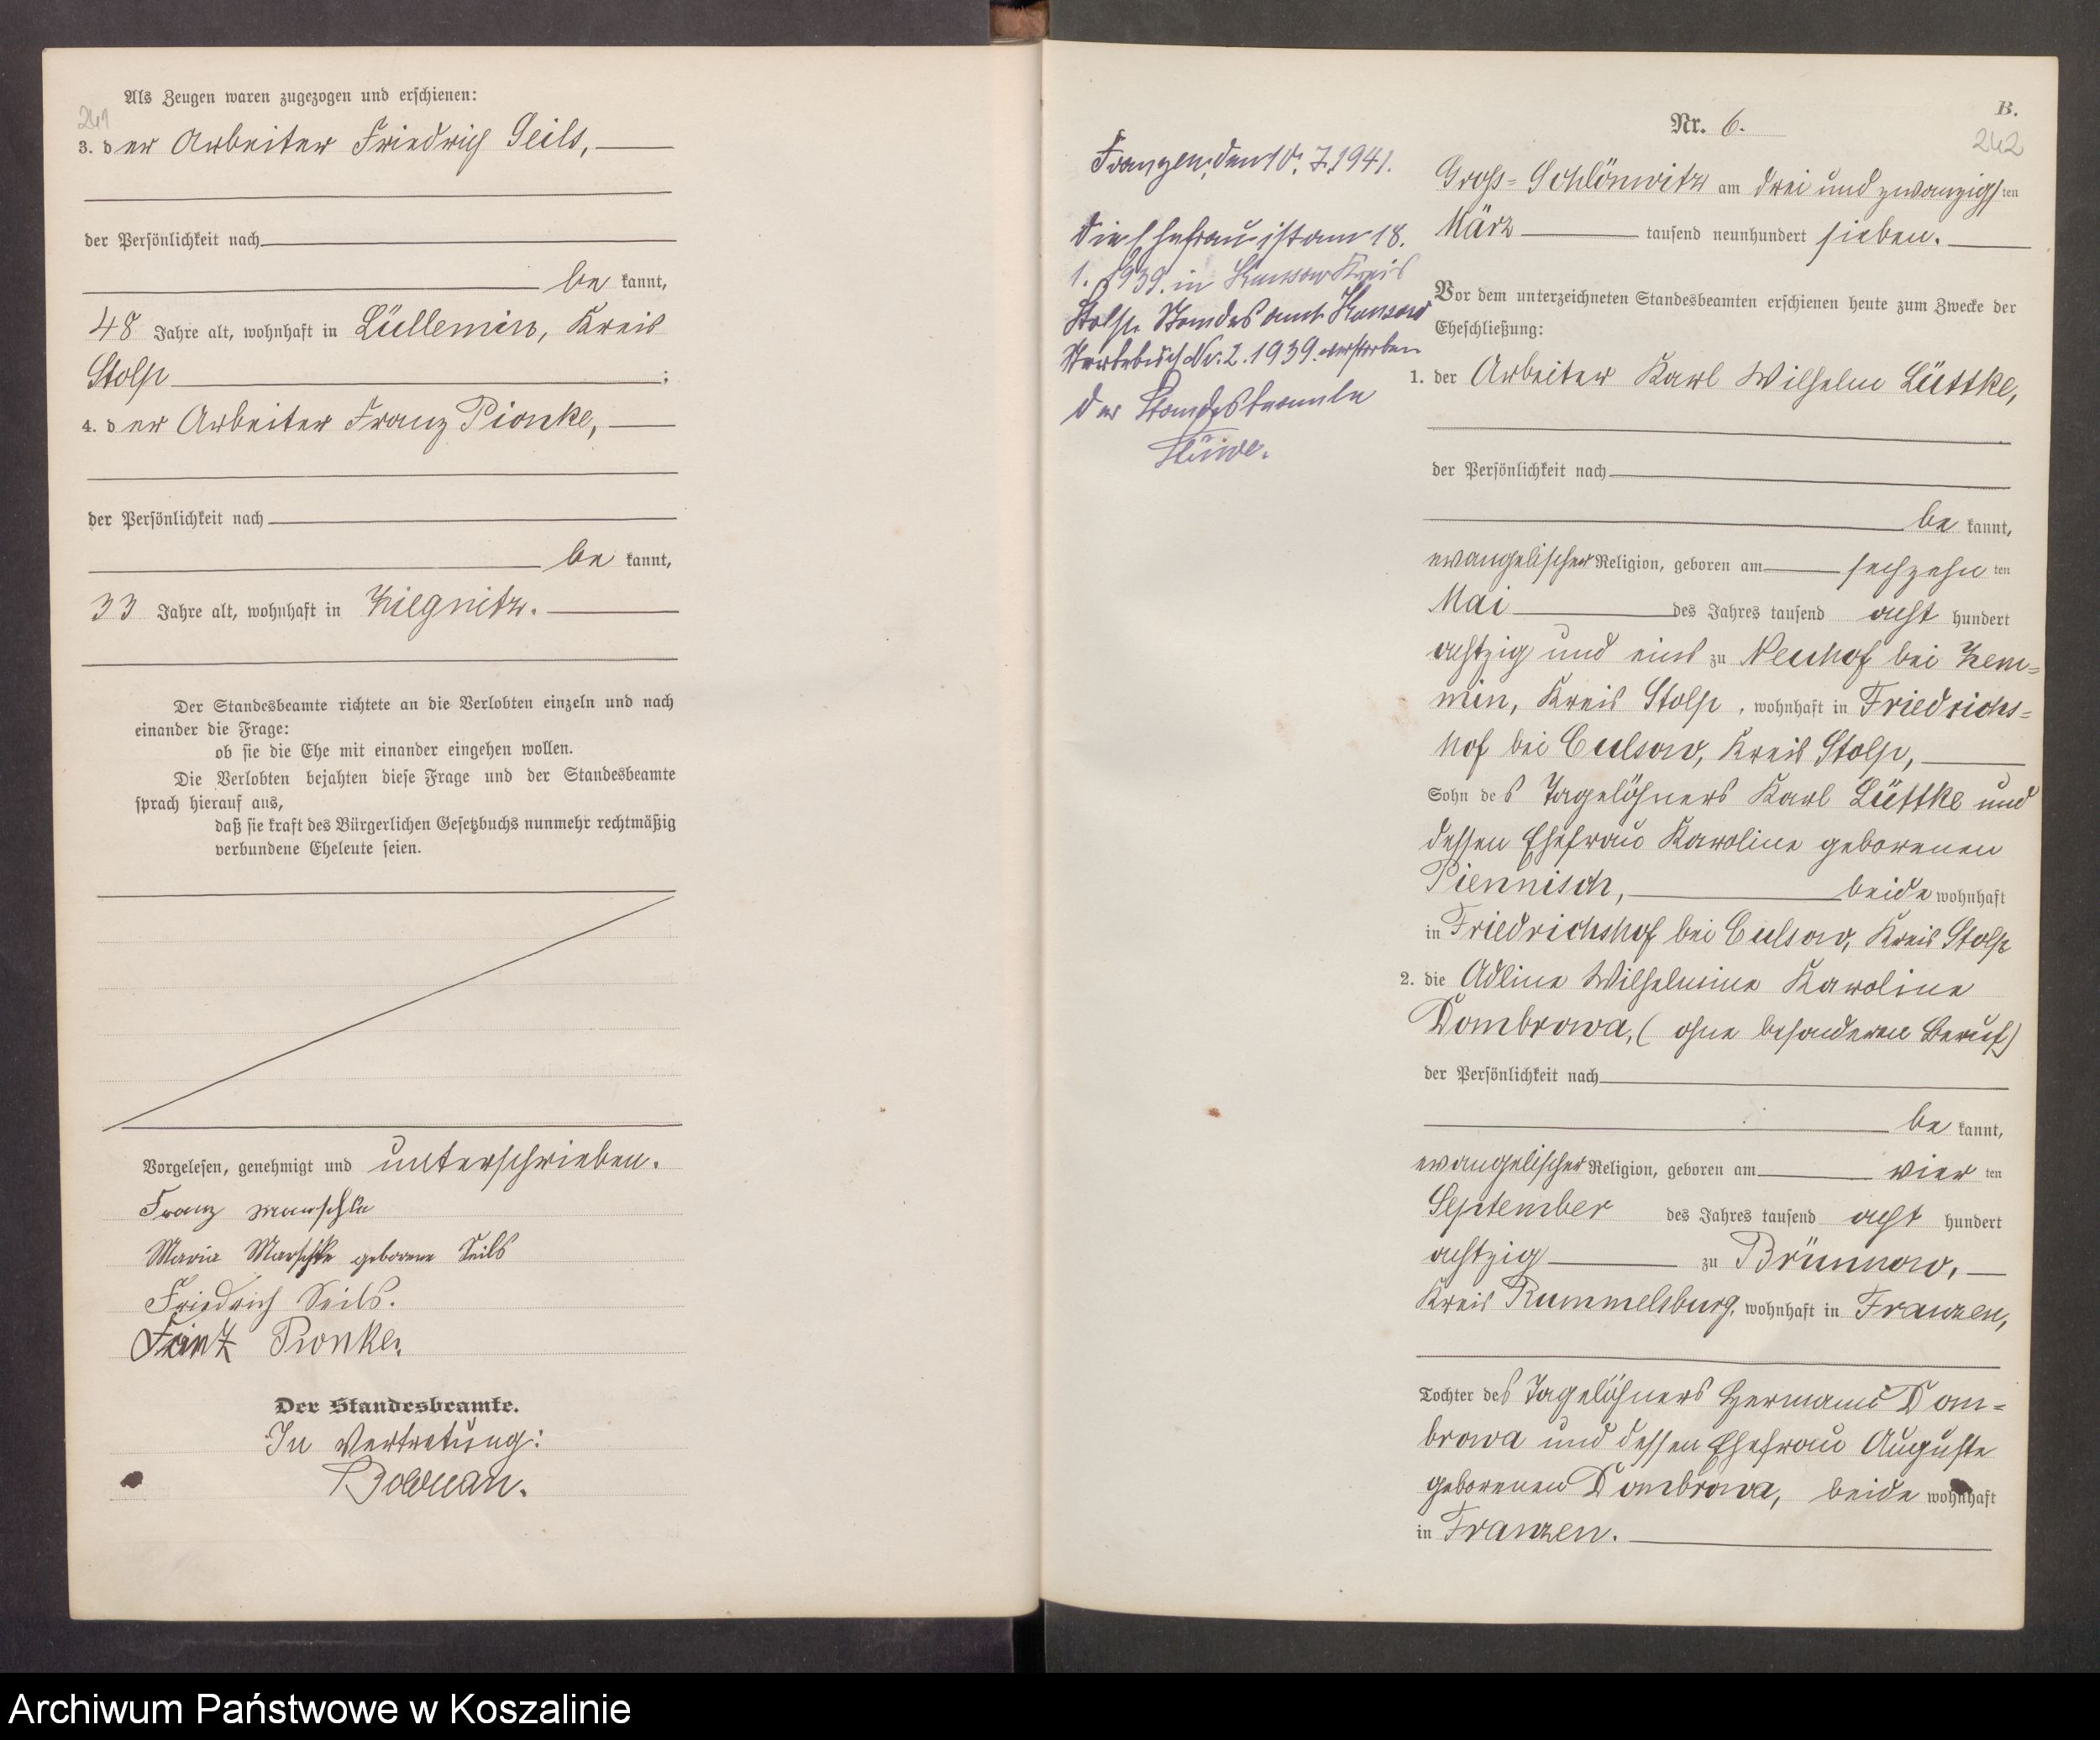 241
Als Zeugen waren zugezogen und erschienen:
3. der Arbeiter Friedrich Seils,
der Persönlichkeit nach
be kannt,
48 Jahre alt, wohnhaft in Lüllemin, Kreis
Stolp ;
4. der Arbeiter Franz Pionke,
der Persönlichkeit nach
be kannt,
33 Jahre alt, wohnhaft in Ziegnitz.
Der Standesbeamte richtete an die Verlobten einzeln und nach
einander die Frage:
ob sie die Ehe mit einander eingehen wollen.
Die Verlobten bejahten diese Frage und der Standesbeamte
sprach hierauf aus,
daß sie kraft des Bürgerlichen Gesetzbuchs nunmehr rechtmäßig
verbundene Eheleute seien.
Vorgelesen, genehmigt und unterschrieben.
Franz Marschke
Maria Marschke geborene Seils
Friedrich Seils.
Franz Pionke,
Der Standesbeamte.
In Vertretung:
B.
242
Nr. 6.
Franzen, den 10. 7. 1941.
Die Ehefrau ist am 18.
1. 1939. in Kunsow Kreis
Stolp Standesamt Kunsow
Sterbebuch Nr. 2. 1939. verstorben
Der Standesbeamte
Groß-Schlönwitz am drei und zwanzigsten
März tausend neunhundert sieben.
Vor dem unterzeichneten Standesbeamten erschienen heute zum Zwecke der
Eheschließung:
1. der Arbeiter Karl Wilhelm Lüttke,
der Persönlichkeit nach
be kannt,
evangelischer Religion, geboren am sechzehn ten
Mai des Jahres tausend acht hundert
achtzig und eins zu Neuhof bei Zem=
min, Kreis Stolp, wohnhaft in Friedrichs=
hof bei Culsow, Kreis Stolp,
Sohn des Tagelöhners Karl Lüttke und
dessen Ehefrau Karoline geborenen
Piennisch, beide wohnhaft
in Friedrichshof bei Culsow, Kreis Stolp
2. die Adline Wilhelmine Karoline
Dombrowa, (ohne besonderen Beruf)
der Persönlichkeit nach
be kannt,
evangelischer Religion, geboren am vier ten
September des Jahres tausend acht hundert
achtzig zu Brünnow,
Kreis Rummelsburg, wohnhaft in Franzen,
Tochter des Tagelöhners Hermann Dom=
browa und dessen Ehefrau Auguste
geborenen Dombrowa, beide wohnhaft
in Franzen.
Archiwum Państwowe w Koszalinie